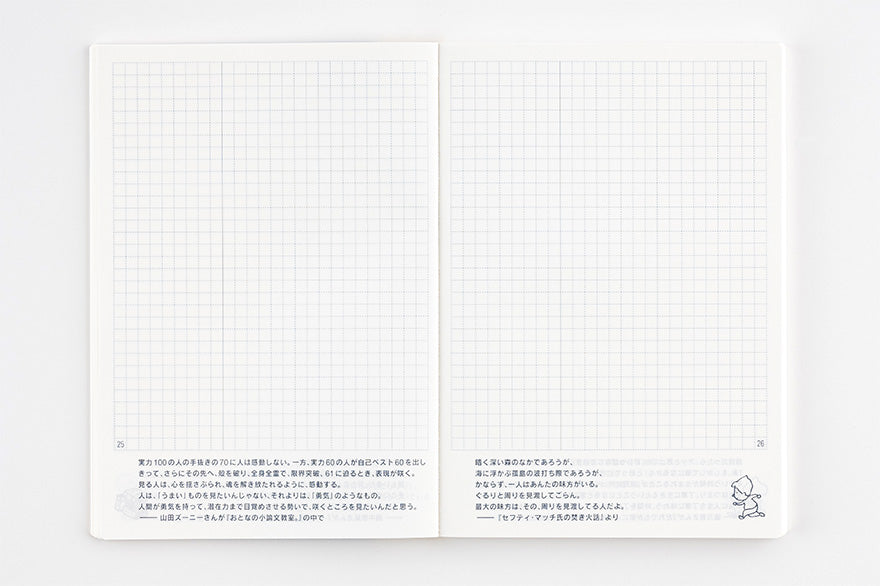 25
実力100の人の手抜きの70に人は感動しない。一方、実力60の人が自己ベスト60を出し
きって、さらにその先へ、殻を破り、全身全霊で、限界突破、61に迫るとき、表現が咲く。
見る人は、心を揺さぶられ、魂を解き放たれるように、感動する。
人は、「うまい」ものを見たいんじゃない、それよりは、「勇気」のようなもの。
人間が勇気を持って、潜在力まで目覚めさせる勢いで、咲くところを見たいんだと思う。
―― 山田ズーニーさんが『おとなの小論文教室。』の中で
26
暗く深い森のなかであろうが、
海に浮かぶ孤島の波打ち際であろうが、
かならず、一人はあんたの味方がいる。
ぐるりと周りを見渡してごらん。
最大の味方は、その、周りを見渡してる人だよ。
―― 『セフティ・マッチ氏の焚き火話』より